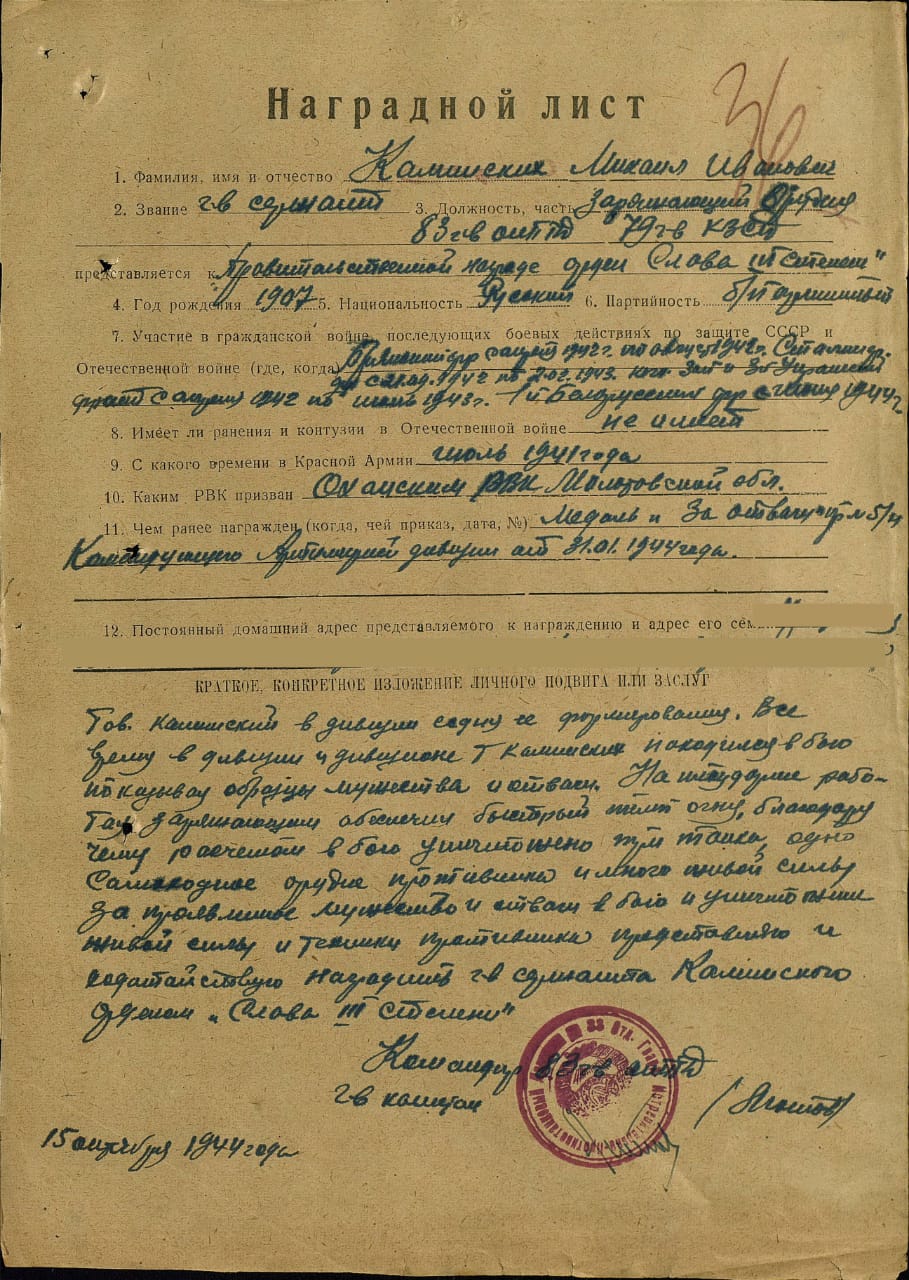 36
Наградной лист
1. Фамилия, имя и отчество Каминских Михаил Иванович
2. Звание гв сержант 3. Должность, часть Заряжающий Орудия
83 гв оиптд 79 гв КЗСД
представляется к Правительственной награде орден Слава III степени"
4. Год рождения 1907 5. Национальность Русский 6. Партийность б/партийный
7. Участие в гражданской войне, последующих боевых действиях по защите СССР и
Отечественной войне (где, когда) фр с 1942г. по август 1942г. Сталингр.
фр 1942 по 2.02.1943. Юго Зап и 3й Украинский
фронт с 1942 по июнь 1943г. 1й Белорусский фр с июня 1944г
8. Имеет ли ранения и контузии в Отечественной войне не имеет
9. С какого времени в Красной Армии июль 1941 года
10. Каким РВК призван Оханским РВК Молотовской обл.
11. Чем ранее награжден (когда, чей приказ, дата, №) Медаль За отвагу пр № б/н
Командующего Артиллерией дивизии от 31.01.1944 года.
12. Постоянный домашний адрес представляемого к награждению и адрес его сем
КРАТКОЕ, КОНКРЕТНОЕ ИЗЛОЖЕНИЕ ЛИЧНОГО ПОДВИГА ИЛИ ЗАСЛУГ
Тов. Каминский в дивизии со дня ее формирования. Все
время в дивизии и дивизионе Т Каминских находился в бою
показывая образцы мужества и отваги. На плацдарме рабо-
тая заряжающим обеспечил быстрый темп огня, благодаря
чему расчетом в бою уничтожено три танка, одно
Самоходное орудие противника и много живой силы
За проявленное мужество и отвагу в бою и уничтожение
живой силы и техники противника представляю и
ходатайствую наградить гв сержанта Каминского
Орденом „Слава III степени"
Командир 83 гв оиптд
гв капитан
15 октября 1944 года